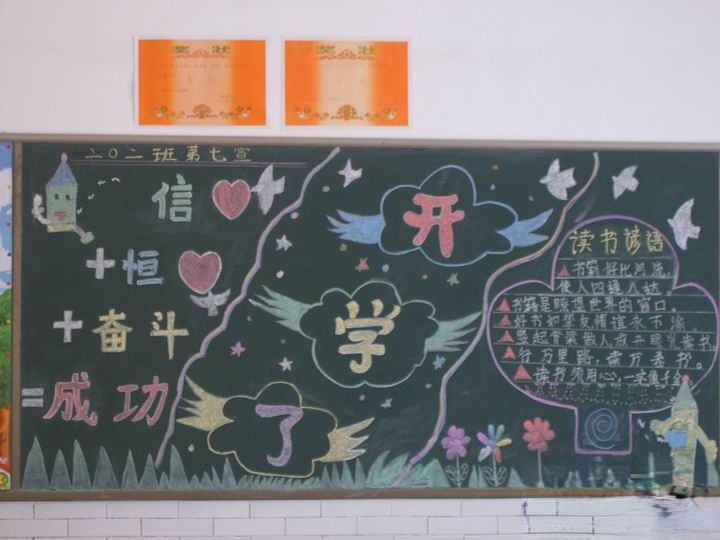 奖状
奖状
二〇二班第七宣
信
+恒
+奋斗
=成功
开
学
了
读书谚语
书籍好比河流
使人四通八达
书籍是瞭望世界的窗口
好书如挚友情谊永不渝
竖起脊梁做人放平眼光读书
行万里路,读万卷书。
读书须用心,一字值千金